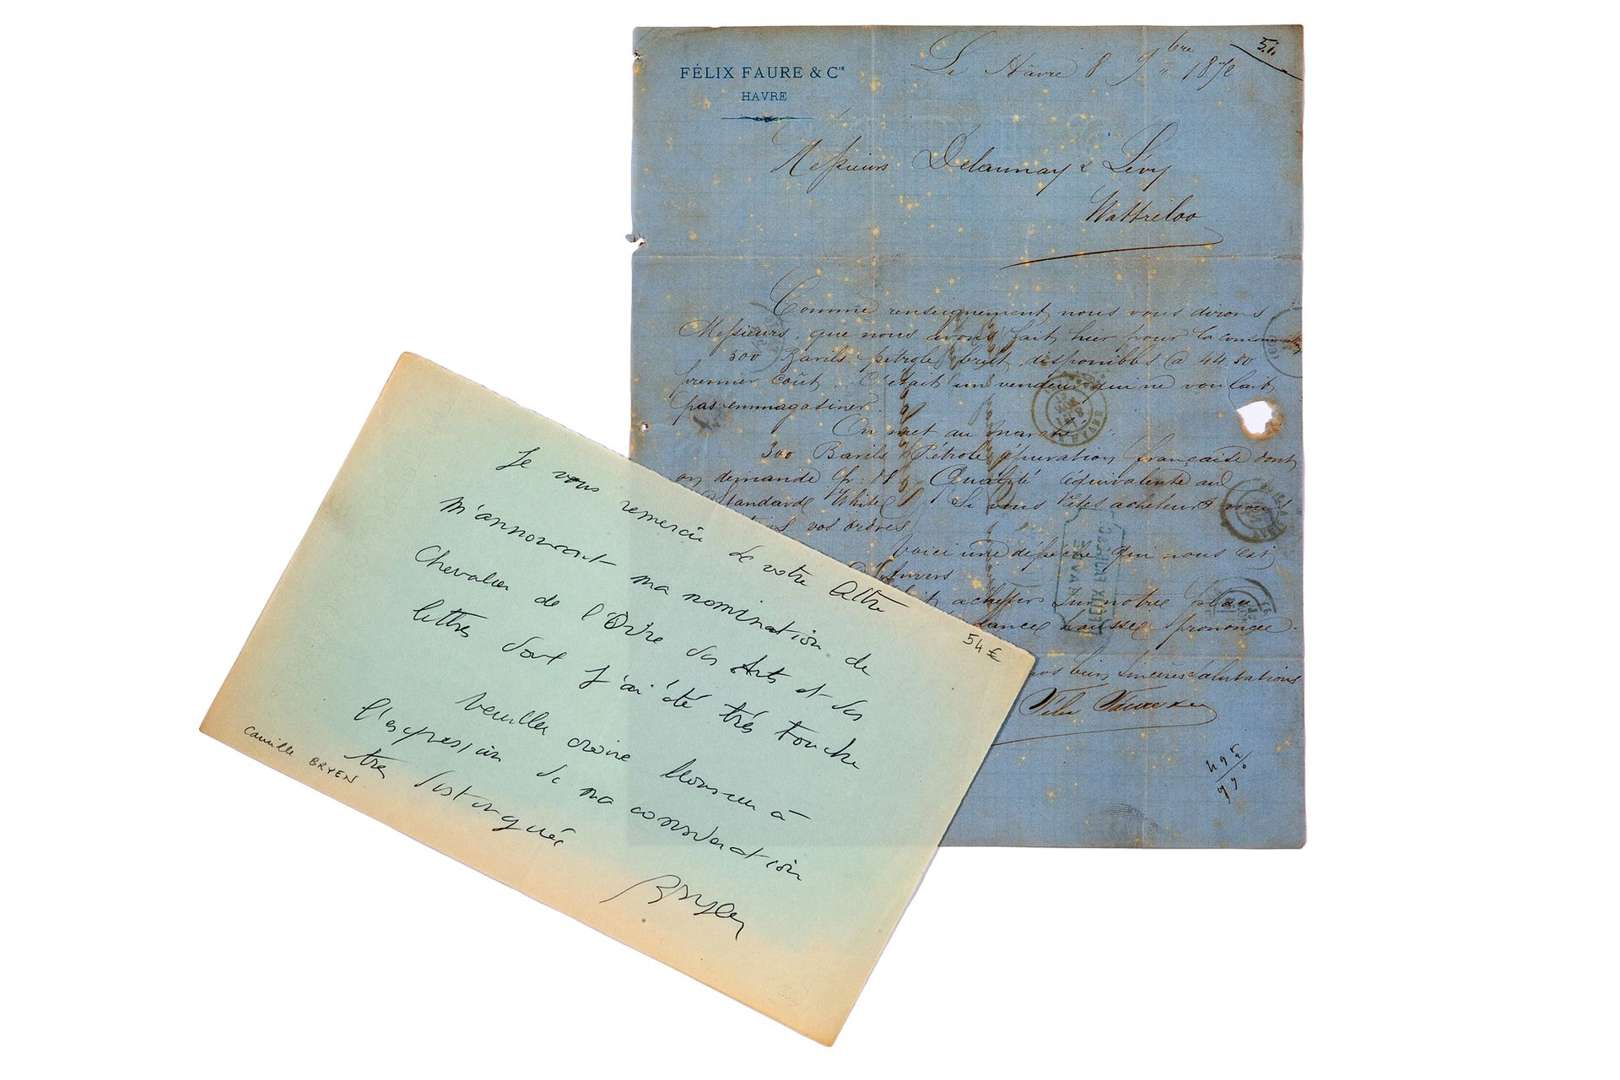 FÉLIX FAURE & Cie
HAVRE
54
Le Hâvre 8 9bre 1872
Messieurs Delaunay & Lévy
Wattreloo
Comme renseignement, nous vous dirons
Messieurs, que nous avons fait hier pour la consommation
300 Barils pétrole brut disponibles à 44 50
premier coût. C'était un vendeur qui ne voulait
pas emmagasiner.
On met au marché
300 Barils Pétrole épuration française dont
on demande Qualité équivalente au
Standard White Si vous êtes acheteurs
vos ordres
Voici une dépêche qui nous est
d'Anvers
acheteurs sur notre place
hausse prononcée
bien sincères salutations
Félix Faure & Cie
LE HAVRE
Je vous remercie de votre lettre
m'annoncant ma nomination de
Chevalier de l'Ordre des Arts et des
lettres dont j'ai été très touché
Veuillez croire Monsieur à
l'expression de ma considération
très distinguée
Bryen
54 €
Camille
BRYEN